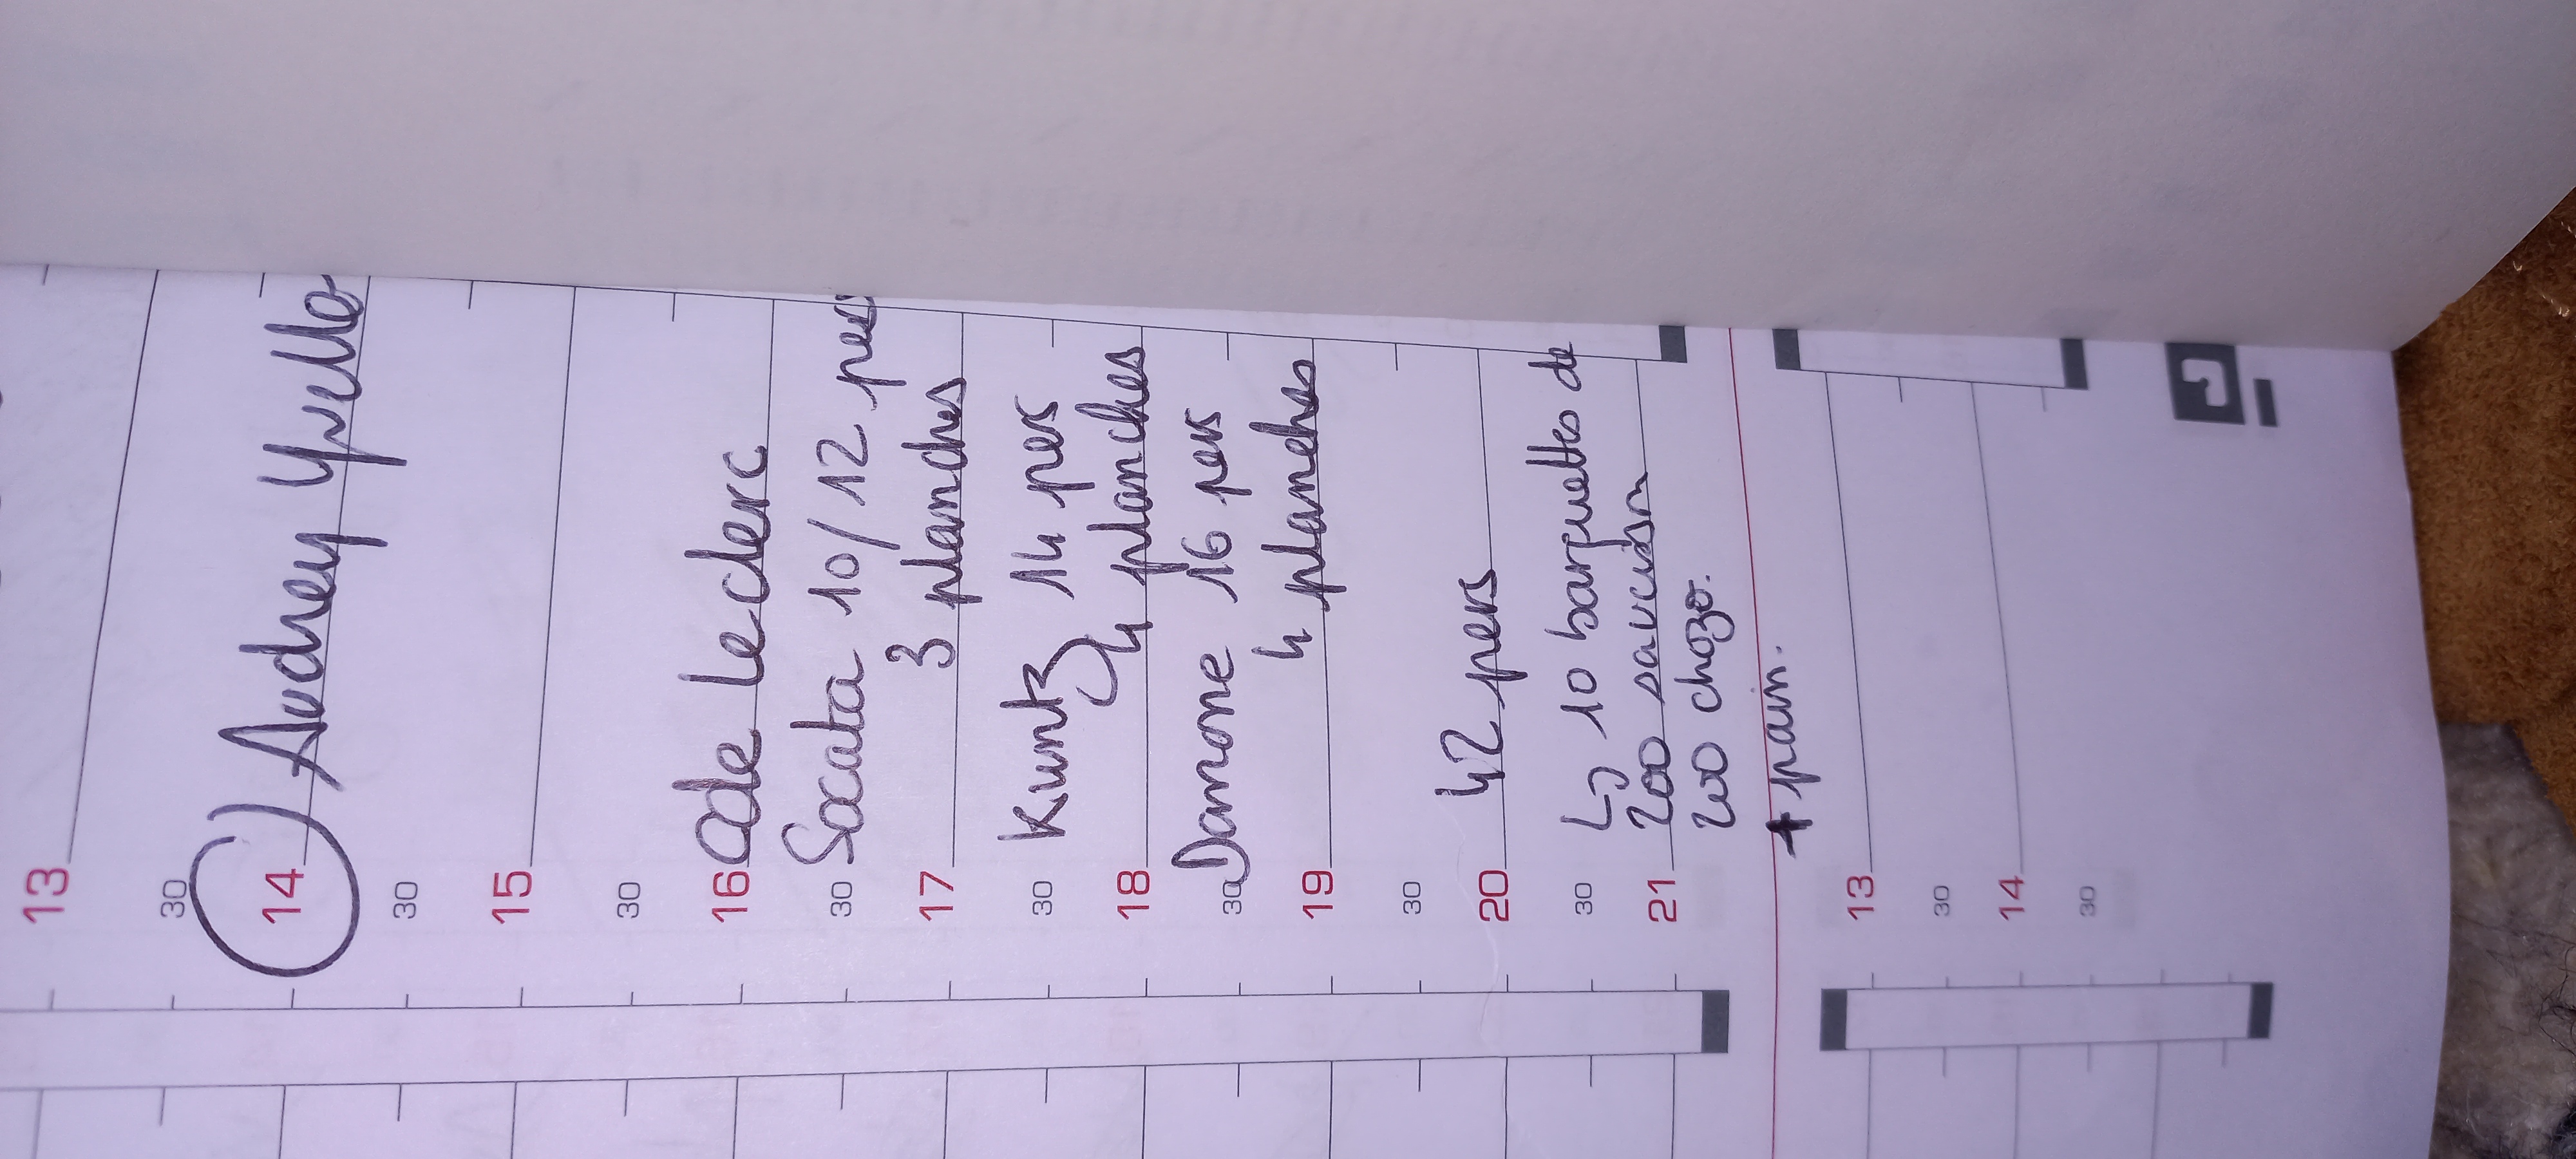 13
30
14) Audrey Yvello
30
15
30
16 Cde Leclerc
30 Socata 10/12 pers
17 3 planches
30 Kuntz 14 pers
18 4 planches
30 Damone 16 pers
19 4 planches
30
20 42 pers
30 ↳ 10 barquettes de
21 200 saucisson
200 chozo.
+ pain.
13
30
14
30